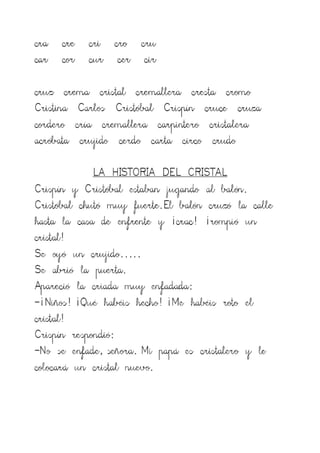 cra cre cri cro cru
car cor cur cer cir
cruz crema cristal cremallera cresta cromo
Cristina Carlos Cristóbal Crispín cruce cruza
cordero cría cremallera carpintero cristalera
acróbata crujido cerdo carta circo crudo
LA HISTORIA DEL CRISTAL
Crispín y Cristóbal estaban jugando al balón.
Cristóbal chutó muy fuerte.El balón cruzó la calle
hasta la casa de enfrente y ¡crac! ¡rompió un
cristal!
Se oyó un crujido.....
Se abrió la puerta.
Apareció la criada muy enfadada:
-¡Niños! ¡Qué habéis hecho! ¡Me habéis roto el
cristal!
Crispín respondió:
-No se enfade, señora. Mi papá es cristalero y le
colocará un cristal nuevo.